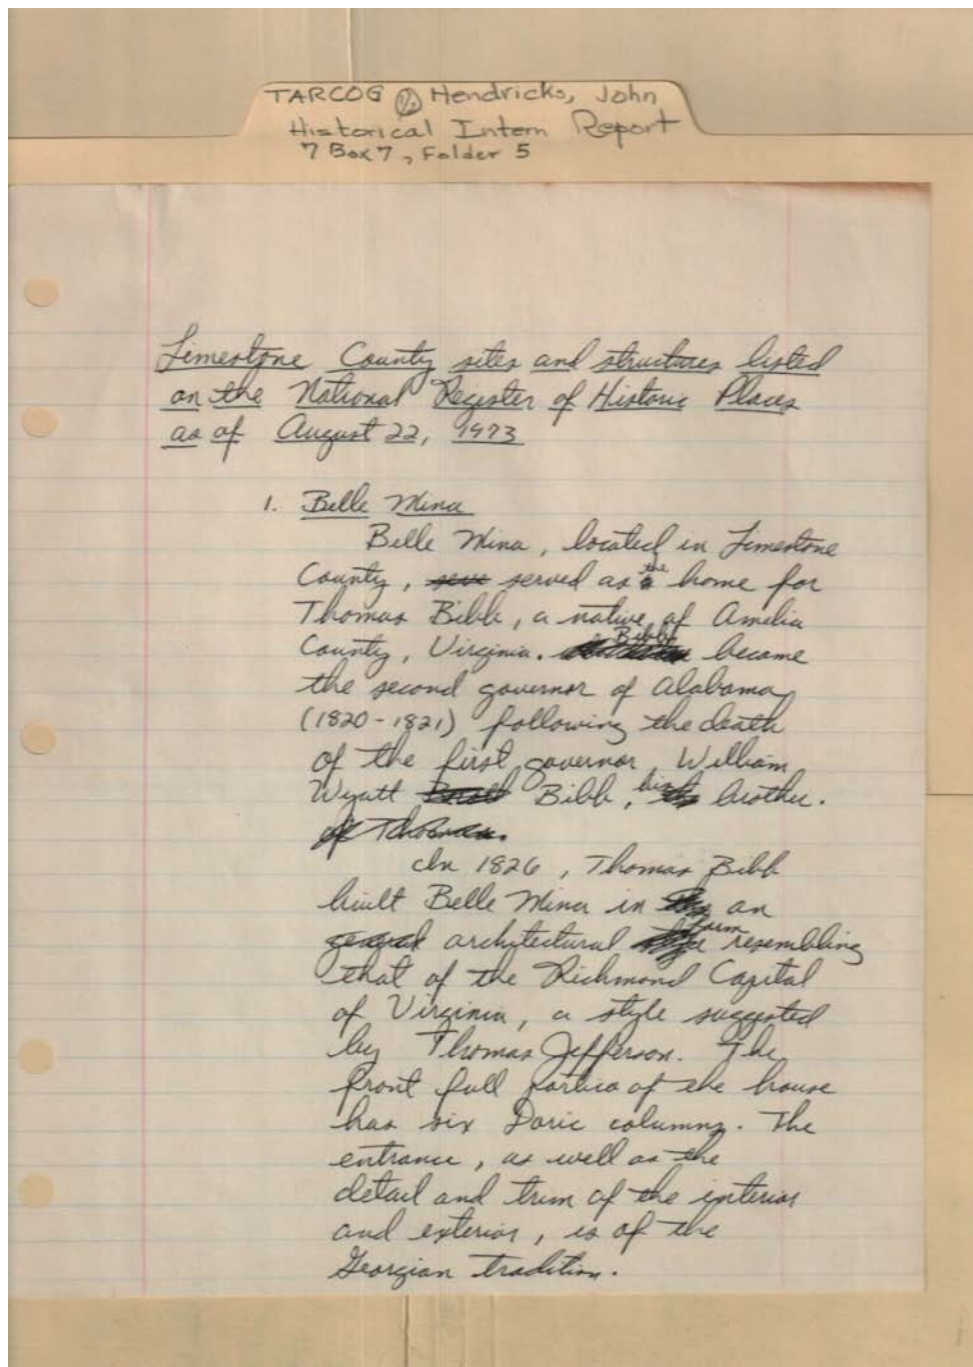 TARCOG Hendricks, John
Historical Intern Report
7 Box 7, Folder 5
Limestone County sites and structures listed
on the National Register of Historic Places
as of August 22, 1973
1. Belle Mina
Belle Mina, located in Limestone
County, served as the home for
Thomas Bibb, a native of Amelia
County, Virginia. Bibb became
the second governor of Alabama
(1820-1821) following the death
of the first governor William
Wyatt Bibb, his brother.
of Thomas.
In 1826, Thomas Bibb
built Belle Mina in an
general architectural form resembling
that of the Richmond Capital
of Virginia, a style suggested
by Thomas Jefferson. The
front full portico of the house
has six Doric columns. The
entrance, as well as the
detail and trim of the interior
and exterior, is of the
Georgian tradition.